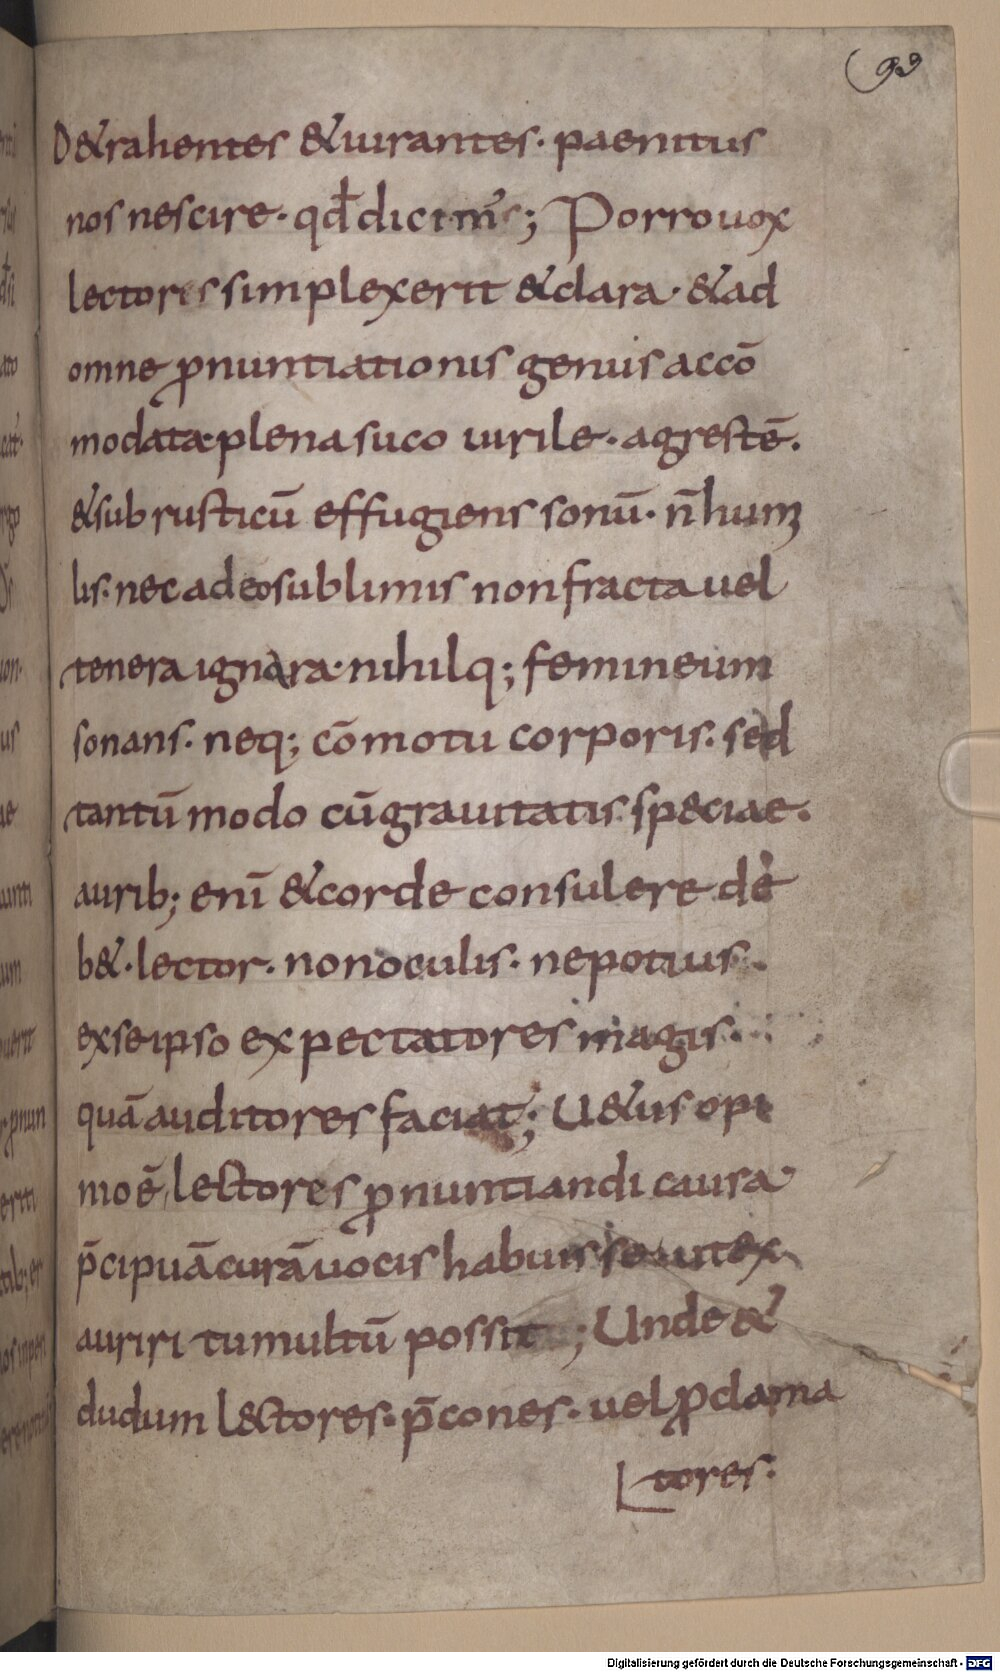 93
D&rahentes &iurantes· paenitus
nos nescire· qđ dicim̄s; Porro uox
lectoris simplex erit &clara· &ad
omne ꝓnuntiationis genus accō
modata· plena suco uirile· agrestē·
&subrusticū effugiens sonū· n̄ humi
lis· nec adeo sublimis non fracta uel
tenera ignara· nihilq; femineum
sonans· neq; cōmotu corporis· sed
tantū modo cū grauitatis speciae·
aurib; enī &corde consulere de
b&· lector· non oculis· ne potius
ex seipso expectatores magis·
quā auditores faciat; U&us opi
mo ē lectores ꝓnuntiandi causa
p̄cipuā curā uocis habuisse ut ex
auriri tumultū possit; Unde &
dudum l&ctores· p̄cones· uel ꝓclama
tores·
Digitalisierung gefördert durch die Deutsche Forschungsgemeinschaft - DFG